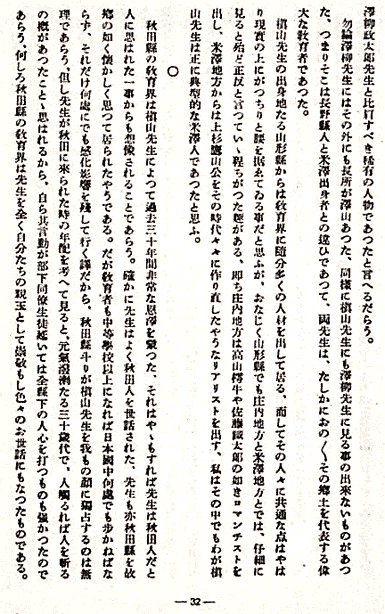 澤柳政太郎先生と比肩すべき稀有の人物であつたと言へるだらう。
勿論澤柳先生にはその外にも長所が澤山あつた、同樣に槇山先生にも澤柳先生に見る事の出來ないものがあつ
た、つまりそこは長野縣人と米澤出身者との違ひであつて、兩先生は、たしかにおの〱その鄕土を代表する偉
大な敎育者であつた。
槇山先生の出身地たる山形縣からは敎育界に隨分多くの人材を出して居る、而してその人々に共通な點はやは
り現實の上にがつちりと腰を据ゑてゐる事だと思ふが、おなじく山形縣でも庄內地方と米澤地方とでは、仔細に
見ると殆ど正反と言つていゝ程ちがつた趣がある、卽ち庄內地方は高山樗牛や佐藤鐵太郎の如きロマンチストを
出し、米澤地方からは上杉鷹山公をその時代々々に作り直したやうなリアリストを出す、私はその中でもわが槇
山先生は正に典型的な米澤人であつたと思ふ。
○
秋田縣の敎育界は槇山先生によつて過去三十年間非常な恩澤を蒙つた、それはやゝもすれば先生は秋田人だと
人に思はれた一事からも想像されることであらう。確かに先生はよく秋田人を世話された、先生も亦秋田縣を故
鄕の如く懷かしく思つて居られたやうである。だが敎育者も中等學校以上になれば日本國中何處でも步かねばな
らず、それだけ何處にでも感化影響を殘して行く譯だから、秋田縣斗りが槇山先生を我もの顏に獨占するのは無
理であらう、但し先生が秋田に來られた時の年配を考へて見ると、元氣潑溂たる三十歲代で、人觸るれば人を斬る
の槪があつたことゝ思はれるから、自ら其言動が部下同僚生徒延いては全縣下の人心を打つものも强かつたので
あらう。何しろ秋田縣の敎育界は先生を全く自分たちの親玉として崇敬もし色々のお世話にもなつたものである。
— 32 —